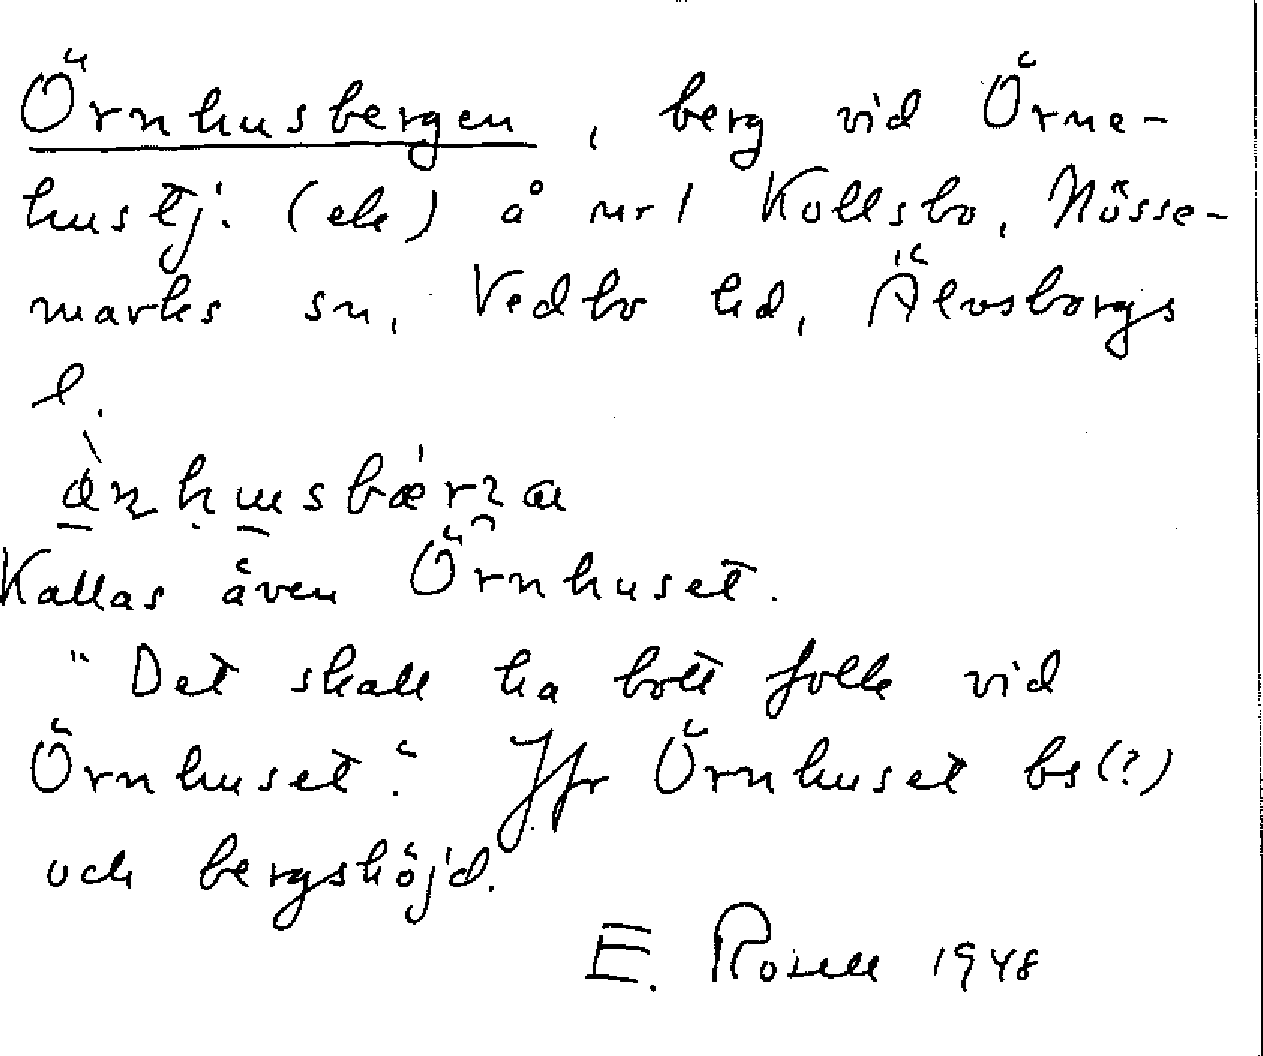 Örnhusbergen, berg vid Örne-
hustj: (ek) å nr 1 Kollsbo, Nösse-
marks sn, Vedbo hd, Älvsborgs
l.
Kallas även Örnhuset.
"Det skall ha bott folk vid
Örnhuset". Jfr Örnhuset bs(?)
och bergshöjd.
E. Rosell 1948